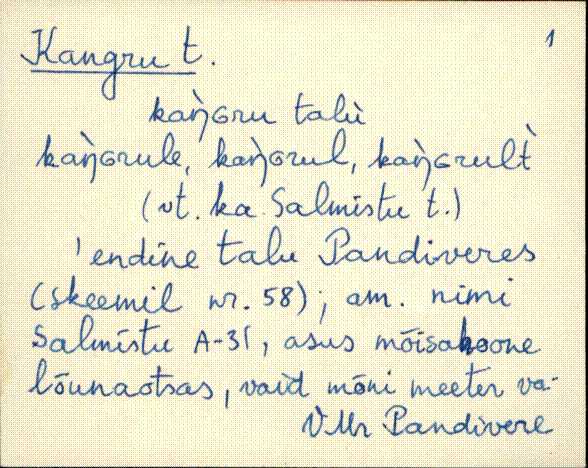 1
Kangru t.
kaŋ̀ɢru talù
kaŋ̀ɢrule, kaŋ̀ɢrul, kaŋ̀ɢrult̀
(vt. ka Salmistu t.)
'endine talu Pandiveres
(skeemil nr. 58); am. nimi
Salmistu A-31, asus mõisahoone
lõunaotsas, vaid mõni meeter va-
VMr Pandivere